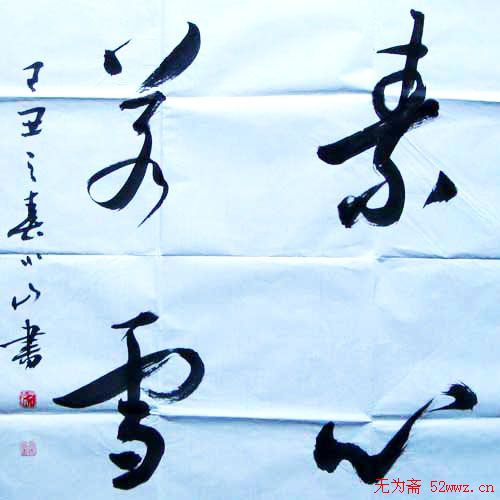 素心
若雪
己丑之春小山书
无为斋 52wwz.cn